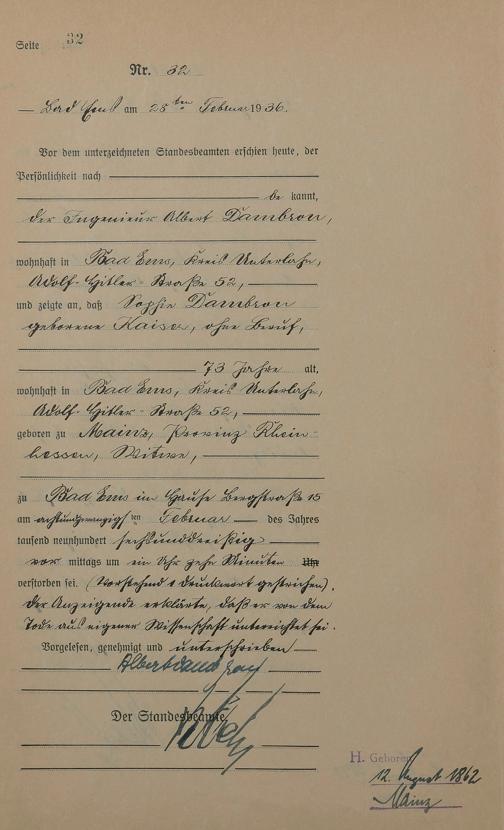 Seite 32
Nr. 32
Bad Ems am 28ten Februar 1936.
Vor dem unterzeichneten Standesbeamten erschien heute, der
Persönlichkeit nach
be kannt,
der Ingenieur Albert Dambron,
wohnhaft in Bad Ems, Kreis Unterlahn,
Adolf-Hitler-Straße 52,
und zeigte an, daß Sophie Dambron
geborene Kaiser, ohne Beruf,
73 Jahre alt,
wohnhaft in Bad Ems, Kreis Unterlahn,
Adolf-Hitler-Straße 52,
geboren zu Mainz, Provinz Rhein-
hessen, Witwe,
zu Bad Ems im Hause Bergstraße 15
am achtundzwanzigsten Februar des Jahres
tausend neunhundert sechsunddreißig
vor mittags um ein Uhr zehn Minuten Uhr
verstorben sei. (Vorstehend 1 Druckwort gestrichen).
Der Anzeigende erklärte, daß er von dem
Tode aus eigener Wissenschaft unterrichtet sei.
Vorgelesen, genehmigt und unterschrieben
Albert Dambron
Der Standesbeamte
H. Geboren
12. August 1862
Mainz